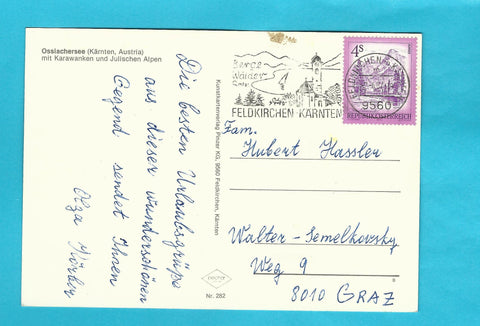 Ossiachersee (Kärnten, Austria)
mit Karawanken und Julischen Alpen
Die besten Urlaubsgrüße
aus dieser wunderschönen
Gegend sendet Ihnen
Olga
Kunstkartenverlag Pinzer KG, 9560 Feldkirchen, Kärnten
Nr. 282
Berge
Wälder
FELDKIRCHEN-KÄRNTEN
9560
4S
REPUBLIK ÖSTERREICH
Fam.
Hubert Hassler
Walter-Semelkovsky
Weg 9
8010 GRAZ